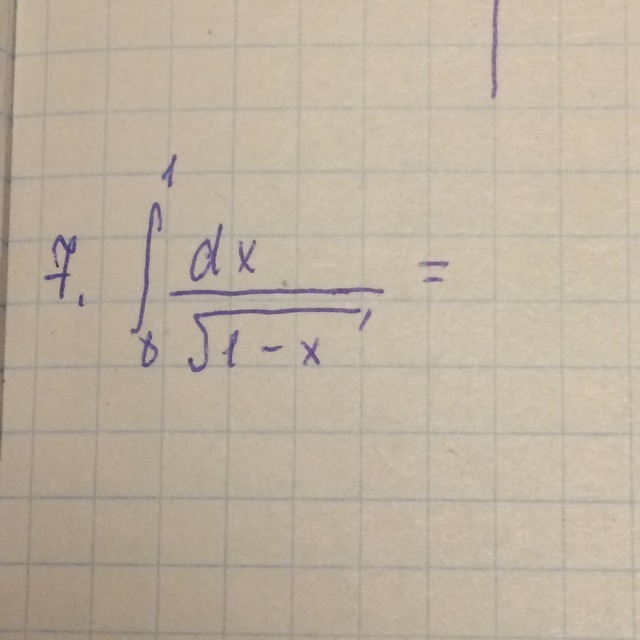 7. ∫₀¹ dx / √(1 - x) =